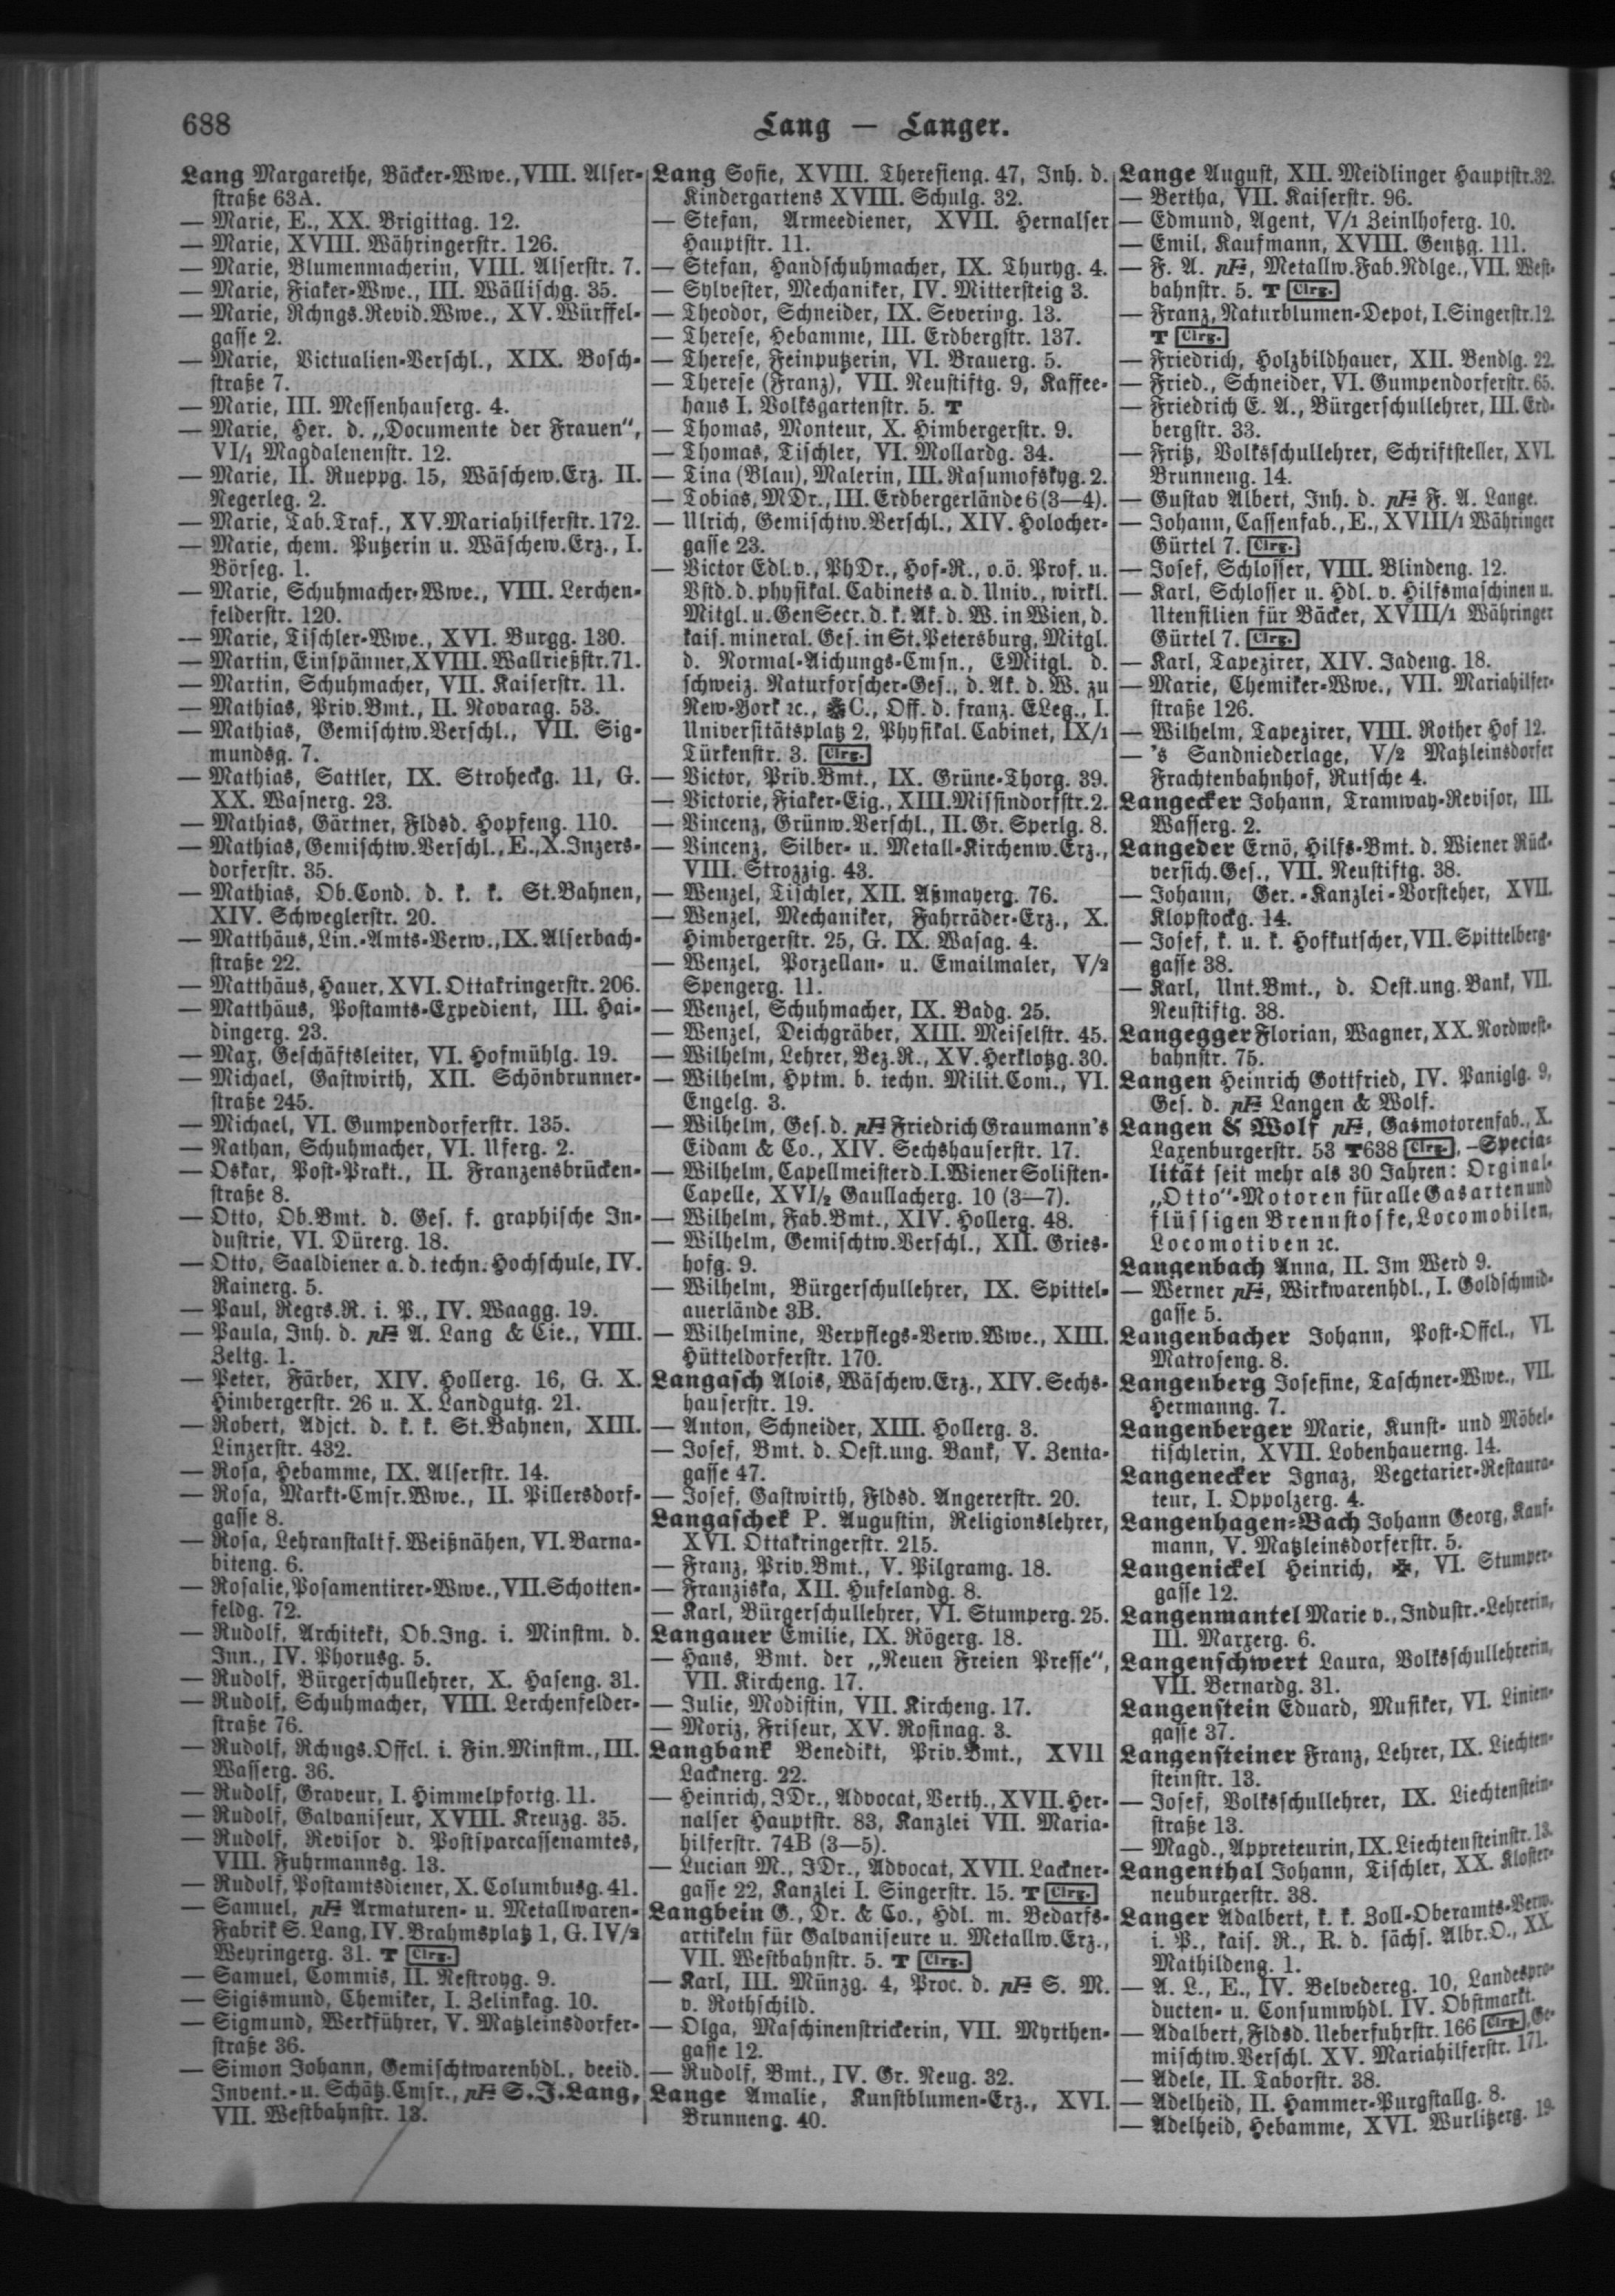 688
Lang — Langer.
Lang Margarethe, Bäcker-Wwe., VIII. Alser-
straße 63A.
— Marie, E., XX. Brigittag. 12.
— Marie, XVIII. Währingerstr. 126.
— Marie, Blumenmacherin, VIII. Alserstr. 7.
— Marie, Fiaker-Wwe., III. Wällischg. 35.
— Marie, Rchngs.Revid.Wwe., XV. Würffel-
gasse 2.
— Marie, Victualien-Verschl., XIX. Bosch-
straße 7.
— Marie, III. Messenhauserg. 4.
— Marie, Her. d. „Documente der Frauen“,
VI/1 Magdalenenstr. 12.
— Marie, II. Rueppg. 15, Wäschew.Erz. II.
Negerleg. 2.
— Marie, Tab.Traf., XV.Mariahilferstr. 172.
— Marie, chem. Putzerin u. Wäschew.Erz., I.
Börseg. 1.
— Marie, Schuhmacher-Wwe., VIII. Lerchen-
felderstr. 120.
— Marie, Tischler-Wwe., XVI. Burgg. 130.
— Martin, Einspänner, XVIII. Wallrießstr. 71.
— Martin, Schuhmacher, VII. Kaiserstr. 11.
— Mathias, Priv.Bmt., II. Novarag. 53.
— Mathias, Gemischtw.Verschl., VII. Sig-
mundsg. 7.
— Mathias, Sattler, IX. Stroheckg. 11, G.
XX. Wasnerg. 23.
— Mathias, Gärtner, Fldsd. Hopfeng. 110.
— Mathias, Gemischtw.Verschl., E., X. Inzers-
dorferstr. 35.
— Mathias, Ob.Cond. d. k. k. St.Bahnen,
XIV. Schweglerstr. 20.
— Matthäus, Lin.-Amts-Verw., IX. Alserbach-
straße 22.
— Matthäus, Hauer, XVI. Ottakringerstr. 206.
— Matthäus, Postamts-Expedient, III. Hai-
dingerg. 23.
— Max, Geschäftsleiter, VI. Hofmühlg. 19.
— Michael, Gastwirth, XII. Schönbrunner-
straße 245.
— Michael, VI. Gumpendorferstr. 135.
— Nathan, Schuhmacher, VI. Uferg. 2.
— Oskar, Post-Prakt., II. Franzensbrücken-
straße 8.
— Otto, Ob.Bmt. d. Ges. f. graphische In-
dustrie, VI. Dürerg. 18.
— Otto, Saaldiener a. d. techn. Hochschule, IV.
Rainerg. 5.
— Paul, Regrs.R. i. P., IV. Waagg. 19.
— Paula, Inh. d. pF A. Lang & Cie., VIII.
Zeltg. 1.
— Peter, Färber, XIV. Hollerg. 16, G. X.
Himbergerstr. 26 u. X. Landgutg. 21.
— Robert, Adjct. d. k. k. St.Bahnen, XIII.
Linzerstr. 432.
— Rosa, Hebamme, IX. Alserstr. 14.
— Rosa, Markt-Cmsr.Wwe., II. Pillersdorf-
gasse 8.
— Rosa, Lehranstalt f. Weißnähen, VI. Barna-
biteng. 6.
— Rosalie, Posamentirer-Wwe., VII. Schotten-
feldg. 72.
— Rudolf, Architekt, Ob.Ing. i. Minstm. d.
Inn., IV. Phorusg. 5.
— Rudolf, Bürgerschullehrer, X. Haseng. 31.
— Rudolf, Schuhmacher, VIII. Lerchenfelder-
straße 76.
— Rudolf, Rchngs.Offcl. i. Fin.Minstm., III.
Wasserg. 36.
— Rudolf, Graveur, I. Himmelpfortg. 11.
— Rudolf, Galvaniseur, XVIII. Kreuzg. 35.
— Rudolf, Revisor d. Postsparcassenamtes,
VIII. Fuhrmannsg. 13.
— Rudolf, Postamtsdiener, X. Columbusg. 41.
— Samuel, pF Armaturen- u. Metallwaren-
Fabrik S. Lang, IV. Brahmsplatz 1, G. IV/2
Weyringerg. 31. T Clrg.
— Samuel, Commis, II. Nestroyg. 9.
— Sigismund, Chemiker, I. Zelinkag. 10.
— Sigmund, Werkführer, V. Matzleinsdorfer-
straße 36.
— Simon Johann, Gemischtwarenhdl., beeid.
Invent.- u. Schätz.Cmsr., pF S. J. Lang,
VII. Westbahnstr. 13.
Lang Sofie, XVIII. Theresieng. 47, Inh. d.
Kindergartens XVIII. Schulg. 32.
— Stefan, Armeediener, XVII. Hernalser
Hauptstr. 11.
— Stefan, Handschuhmacher, IX. Thuryg. 4.
— Sylvester, Mechaniker, IV. Mittersteig 3.
— Theodor, Schneider, IX. Severing. 13.
— Therese, Hebamme, III. Erdbergstr. 137.
— Therese, Feinputzerin, VI. Brauerg. 5.
— Therese (Franz), VII. Neustiftg. 9, Kaffee-
haus I. Volksgartenstr. 5. T
— Thomas, Monteur, X. Himbergerstr. 9.
— Thomas, Tischler, VI. Mollardg. 34.
— Tina (Blau), Malerin, III. Rasumofskyg. 2.
— Tobias, MDr., III. Erdbergerlände 6 (3—4).
— Ulrich, Gemischtw.Verschl., XIV. Holocher-
gasse 23.
— Victor Edl. v., PhDr., Hof-R., o.ö. Prof. u.
Vstd. d. physikal. Cabinets a. d. Univ., wirkl.
Mitgl. u. GenSecr. d. k. Ak. d. W. in Wien, d.
kais. mineral. Ges. in St. Petersburg, Mitgl.
d. Normal-Aichungs-Cmsn., EMitgl. d.
schweiz. Naturforscher-Ges., d. Ak. d. W. zu
New-York ꝛc., C., Off. d. franz. ELeg., I.
Universitätsplatz 2, Physikal. Cabinet, IX/1
Türkenstr. 3. Clrg.
— Victor, Priv.Bmt., IX. Grüne-Thorg. 39.
— Victorie, Fiaker-Eig., XIII. Missindorfstr. 2.
— Vincenz, Grünw.Verschl., II. Gr. Sperlg. 8.
— Vincenz, Silber- u. Metall-Kirchenw.Erz.,
VIII. Strozzig. 43.
— Wenzel, Tischler, XII. Aßmayerg. 76.
— Wenzel, Mechaniker, Fahrräder-Erz., X.
Himbergerstr. 25, G. IX. Wasag. 4.
— Wenzel, Porzellan- u. Emailmaler, V/2
Spengerg. 11.
— Wenzel, Schuhmacher, IX. Badg. 25.
— Wenzel, Deichgräber, XIII. Meiselstr. 45.
— Wilhelm, Lehrer, Bez.R., XV. Herklotzg. 30.
— Wilhelm, Hptm. b. techn. Milit.Com., VI.
Engelg. 3.
— Wilhelm, Ges. d. pF Friedrich Graumann's
Eidam & Co., XIV. Sechshauserstr. 17.
— Wilhelm, Capellmeister d. I. Wiener Solisten-
Capelle, XVI/2 Gaullacherg. 10 (3—7).
— Wilhelm, Fab.Bmt., XIV. Hollerg. 48.
— Wilhelm, Gemischtw.Verschl., XII. Gries-
hofg. 9.
— Wilhelm, Bürgerschullehrer, IX. Spittel-
auerlände 3B.
— Wilhelmine, Verpflegs-Verw.Wwe., XIII.
Hütteldorferstr. 170.
Langasch Alois, Wäschew.Erz., XIV. Sechs-
hauserstr. 19.
— Anton, Schneider, XIII. Hollerg. 3.
— Josef, Bmt. d. Oest.ung. Bank, V. Zenta-
gasse 47.
— Josef, Gastwirth, Fldsd. Angererstr. 20.
Langaschek P. Augustin, Religionslehrer,
XVI. Ottakringerstr. 215.
— Franz, Priv.Bmt., V. Pilgramg. 18.
— Franziska, XII. Hufelandg. 8.
— Karl, Bürgerschullehrer, VI. Stumperg. 25.
Langauer Emilie, IX. Rögerg. 18.
— Hans, Bmt. der „Neuen Freien Presse“,
VII. Kircheng. 17.
— Julie, Modistin, VII. Kircheng. 17.
— Moriz, Friseur, XV. Rosinag. 3.
Langbank Benedikt, Priv.Bmt., XVII
Lacknerg. 22.
— Heinrich, JDr., Advocat, Verth., XVII. Her-
nalser Hauptstr. 83, Kanzlei VII. Maria-
hilferstr. 74B (3—5).
— Lucian M., JDr., Advocat, XVII. Lackner-
gasse 22, Kanzlei I. Singerstr. 15. T Clrg.
Langbein G., Dr. & Co., Hdl. m. Bedarfs-
artikeln für Galvaniseure u. Metallw.Erz.,
VII. Westbahnstr. 5. T Clrg.
— Karl, III. Münzg. 4, Proc. d. pF S. M.
v. Rothschild.
— Olga, Maschinenstrickerin, VII. Myrthen-
gasse 12.
— Rudolf, Bmt., IV. Gr. Neug. 32.
Lange Amalie, Kunstblumen-Erz., XVI.
Brunneng. 40.
Lange August, XII. Meidlinger Hauptstr. 32.
— Bertha, VII. Kaiserstr. 96.
— Edmund, Agent, V/1 Zeinlhoferg. 10.
— Emil, Kaufmann, XVIII. Gentzg. 111.
— F. A. pF, Metallw.Fab.Ndlge., VII. West-
bahnstr. 5. T Clrg.
— Franz, Naturblumen-Depot, I. Singerstr. 12.
T Clrg.
— Friedrich, Holzbildhauer, XII. Bendlg. 22.
— Fried., Schneider, VI. Gumpendorferstr. 65.
— Friedrich E. A., Bürgerschullehrer, III. Erd-
bergstr. 33.
— Fritz, Volksschullehrer, Schriftsteller, XVI.
Brunneng. 14.
— Gustav Albert, Inh. d. pF F. A. Lange.
— Johann, Cassenfab., E., XVIII/1 Währinger
Gürtel 7. Clrg.
— Josef, Schlosser, VIII. Blindeng. 12.
— Karl, Schlosser u. Hdl. v. Hilfsmaschinen u.
Utensilien für Bäcker, XVIII/1 Währinger
Gürtel 7. Clrg.
— Karl, Tapezirer, XIV. Jadeng. 18.
— Marie, Chemiker-Wwe., VII. Mariahilfer-
straße 126.
— Wilhelm, Tapezirer, VIII. Rother Hof 12.
— 's Sandniederlage, V/2 Matzleinsdorfer
Frachtenbahnhof, Rutsche 4.
Langecker Johann, Tramway-Revisor, III.
Wasserg. 2.
Langeder Ernö, Hilfs-Bmt. d. Wiener Rück-
versich.Ges., VII. Neustiftg. 38.
— Johann, Ger.-Kanzlei-Vorsteher, XVII.
Klopstockg. 14.
— Josef, k. u. k. Hofkutscher, VII. Spittelberg-
gasse 38.
— Karl, Unt.Bmt., d. Oest.ung. Bank, VII.
Neustiftg. 38.
Langegger Florian, Wagner, XX. Nordwest-
bahnstr. 75.
Langen Heinrich Gottfried, IV. Paniglg. 9,
Ges. d. pF Langen & Wolf.
Langen & Wolf pF, Gasmotorenfab., X.
Laxenburgerstr. 53 T638 Clrg., —Specia-
lität seit mehr als 30 Jahren: Orginal-
„Otto“-Motoren für alle Gasarten und
flüssigen Brennstoffe, Locomobilen,
Locomotiven ꝛc.
Langenbach Anna, II. Im Werd 9.
— Werner pF, Wirkwarenhdl., I. Goldschmid-
gasse 5.
Langenbacher Johann, Post-Offcl., VI.
Matroseng. 8.
Langenberg Josefine, Taschner-Wwe., VII.
Hermanng. 7.
Langenberger Marie, Kunst- und Möbel-
tischlerin, XVII. Lobenhauerng. 14.
Langenecker Ignaz, Vegetarier-Restaura-
teur, I. Oppolzerg. 4.
Langenhagen-Bach Johann Georg, Kauf-
mann, V. Matzleinsdorferstr. 5.
Langenickel Heinrich, ✠, VI. Stumper-
gasse 12.
Langenmantel Marie v., Industr.-Lehrerin,
III. Marxerg. 6.
Langenschwert Laura, Volksschullehrerin,
VII. Bernardg. 31.
Langenstein Eduard, Musiker, VI. Linien-
gasse 37.
Langensteiner Franz, Lehrer, IX. Liechten-
steinstr. 13.
— Josef, Volksschullehrer, IX. Liechtenstein-
straße 13.
— Magd., Appreteurin, IX. Liechtensteinstr. 13.
Langenthal Johann, Tischler, XX. Kloster-
neuburgerstr. 38.
Langer Adalbert, k. k. Zoll-Oberamts-Verw.
i. P., kais. R., R. d. sächs. Albr.O., XX.
Mathildeng. 1.
— A. L., E., IV. Belvedereg. 10, Landespro-
ducten- u. Consumwhdl. IV. Obstmarkt.
— Adalbert, Fldsd. Ueberfuhrstr. 166 Clrg., Ge-
mischtw.Verschl. XV. Mariahilferstr. 171.
— Adele, II. Taborstr. 38.
— Adelheid, II. Hammer-Purgstallg. 8.
— Adelheid, Hebamme, XVI. Wurlitzerg. 19.